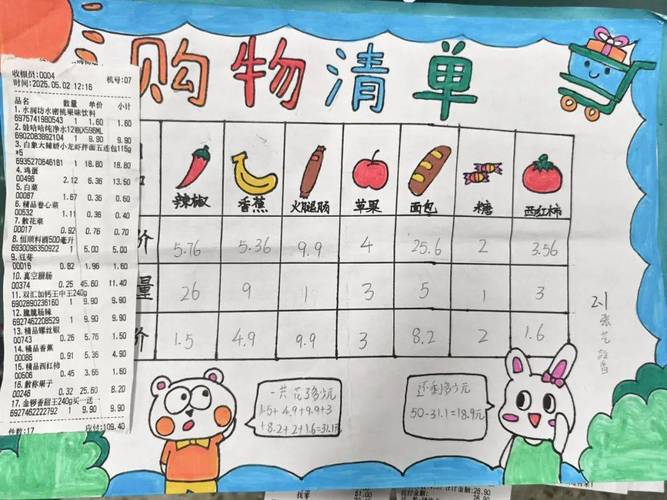 购物清单
收银员:0004 机号:07
时间:2025.05.02 12:16
品名 数量 单价 小计
1.水润坊水蜜桃果味饮料
6975741980543 1 1.60 1.60
2.娃哈哈纯净水12瓶X596ML
6902083892104 1 9.90 9.90
3.白象大辣娇小龙虾拌面五连包115g
*5
6935270646181 1 18.80 18.80
4.鸡蛋
00496 2.12 6.36 13.50
5.白菜
00087 1.67 0.36 0.60
6.精品卷心菜
00532 1.11 0.36 0.40
7.散花菜
00017 0.92 0.76 0.70
8.恒顺料酒500毫升
6930096350922 1 5.00 5.00
9.豆芽
00016 0.82 1.96 1.60
10.真空腊肠
00374 0.25 45.60 11.40
11.双汇加钙王中王240g
6902890236160 1 9.90 9.90
12.脆脆肠辣
6927462208529 1 9.90 9.90
13.精品螺丝椒
00743 0.26 5.76 1.50
14.精品香蕉
00086 0.91 5.36 4.90
15.精品西红柿
00506 0.45 3.56 1.60
16.散称果子
00246 0.32 25.60 8.20
17.金锣香甜王240g买一送一
6927462222792 1 9.90 9.90
件数:17 应付:109.40
辣椒 香蕉 火腿肠 苹果 面包 糖 西红柿
价 5.76 5.36 9.9 4 25.6 2 3.56
量 26 9 1 3 5 1 3
价 1.5 4.9 9.9 3 8.2 2 1.6
2.1
张艺
一共花了多少元
1.5+4.9+9.9+3
+8.2+2+1.6=31.1元
还剩多少元
50-31.1=18.9元